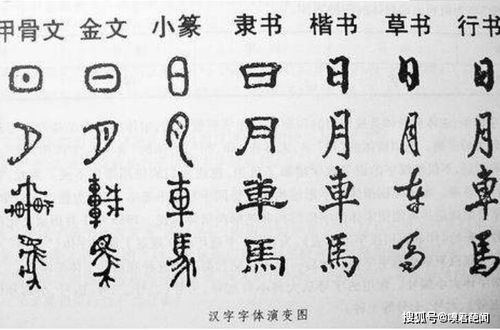 甲骨文 金文 小篆 隶书 楷书 草书 行书
日 日 日 日 日 日 日
月 月 月 月 月 月 月
車 車 車 車 車 车 車
馬 馬 馬 馬 馬 马 馬
汉字字体演变图
搜狐号@嗅着绝闻